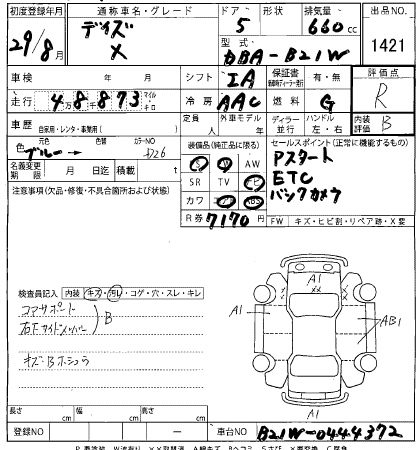 初度登録年月 通称車名・グレード ドア 形状 排気量 出品No.
29/8月 デイズ X 5 660cc 1421
型式 DBA-B21W
車検 年 月 シフト IA 保証書 有・無 評価点
走行 4万8千873 マイル キロ 冷房 AAC 燃料 G R
車歴 自家用・レンタ・事業用( ) 定員 人 外車モデル 年 ディーラー 並行 ハンドル 左・右 内装評価 B
色 ブルー 色替 カラーNO
装備品(純正品に限る) セールスポイント(正常に機能するもの)
名義変更期限 月 日迄 積載 t
AW アスタート
SR TV ナビ ETC
カワ ABS バックカメラ
R券 7170円
注意事項(欠品・修復・不具合箇所および状態)
FW キズ・ヒビ割・リペア跡・X要
検査員記入 内装 キズ・汚レ・コゲ・穴・スレ・キレ
コアサポート
右Fサイドメンバー B
キズB ホシュウ
XX
A1
A1
AB1
A1
長さ cm 幅 cm 高さ cm
登録NO ー 車台No B21W-0444372